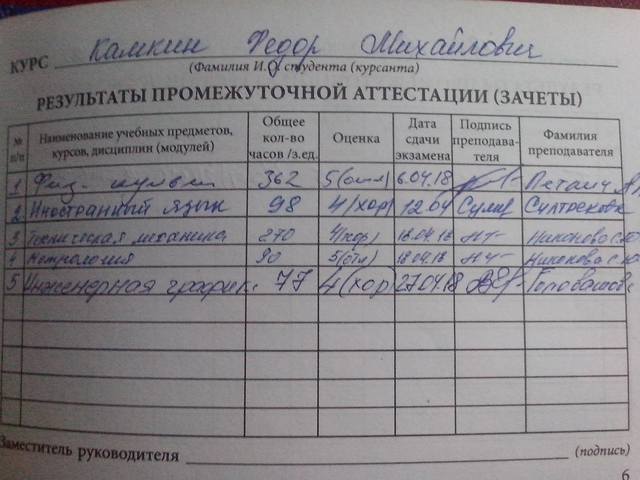 КУРС Камкин Федор Михайлович
(Фамилия И.О. студента (курсанта)
РЕЗУЛЬТАТЫ ПРОМЕЖУТОЧНОЙ АТТЕСТАЦИИ (ЗАЧЕТЫ)
№ п/п Наименование учебных предметов, курсов, дисциплин (модулей) Общее кол-во часов /з.ед. Оценка Дата сдачи экзамена Подпись преподава-теля Фамилия преподавателя
1 Физ. 362 5(отл) 6.04.18
2 Иностранный язык 98 4(хор) 12.04
3 Техническая механика 270 4(хор) 18.04.18 Никонова С.Ю
4 Метрология 90 5(отл) 18.04.18 Никонова С.Ю
5 Инженерная график. 77 4(хор) 27.04.18
Заместитель руководителя (подпись)
6